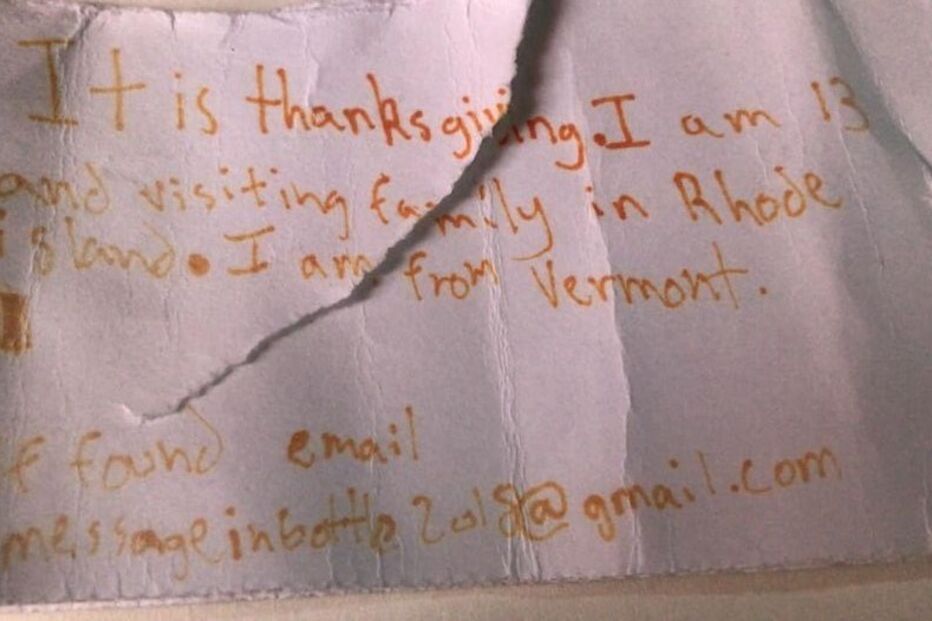 It is thanksgiving. I am 13
and visiting family in Rhode
island. I am from Vermont.
if found email
messageinbottle2018@gmail.com